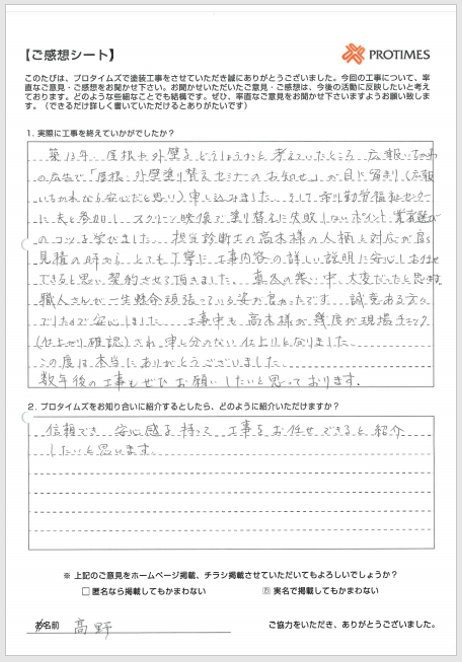 【ご感想シート】
PROTIMES
このたびは、プロタイムズで塗装工事をさせていただき誠にありがとうございました。今回の工事について、率
直なご意見・ご感想をお聞かせ下さい。お聞かせいただいたご意見・ご感想は、今後の活動に反映したいと考え
ております。どのような些細なことでも結構です。ぜひ、率直なご意見をお聞かせ下さいますようお願い致しま
す。（できるだけ詳しく書いていただけるとありがたいです）
1. 実際に工事を終えていかがでしたか？
築13年、屋根や外壁をどうしようかと考えていたところ、広報いちかわ
の広告で「屋根・外壁塗り替えセミナーのお知らせ」が目に留まり（広報
いちかわなら安心だと思い）申し込みました。そして市川勤労福祉センター
に夫と参加し、スクリーン映像で塗り替えに失敗しないポイント、業者選び
のコツを学びました。担当診断士の高木様の人柄と対応が良く
見積の時から、とても丁寧に工事内容の詳しい説明に安心しお任せ
できると思い契約させて頂きました。真冬の寒い中、大変だったと思います
職人さんが一生懸命頑張っている姿が良かったです。誠実ある方々
でしたので安心しました。工事中も高木様が幾度か現場チェック
(仕上がり確認)され、申し分のない仕上りとなりました。
この度は本当にありがとうございました。
数年後の工事もぜひお願いしたいと思っております。
2. プロタイムズをお知り合いに紹介するとしたら、どのように紹介いただけますか？
信頼でき、安心感を持って工事をお任せできると紹介
したいと思います。
※ 上記のご意見をホームページ掲載、チラシ掲載させていただいてもよろしいでしょうか？
□ 匿名なら掲載してもかまわない
実名で掲載してもかまわない
お名前 高野
ご協力をいただき、ありがとうございました。